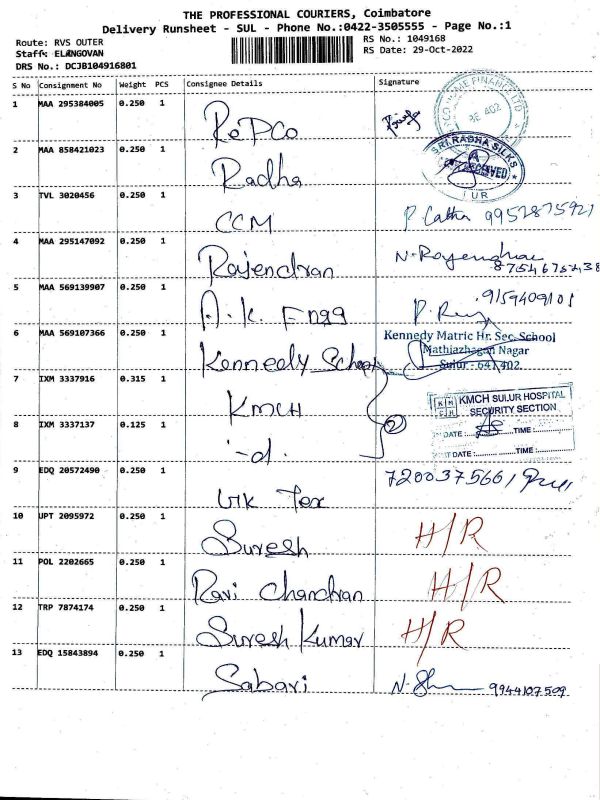 THE PROFESSIONAL COURIERS, Coimbatore
Delivery Runsheet - SUL - Phone No.:0422-3505555 - Page No.:1
Route: RVS OUTER
RS No.: 1049168
Staff: ELANGOVAN
RS Date: 29-Oct-2022
DRS No.: DCJB104916801
S No Consignment No Weight PCS Consignee Details Signature
1 MAA 295384005 0.250 1 RePCo
2 MAA 858421023 0.250 1 Radha SRI RADHA SILKS RECEIVED
3 TVL 3020456 0.250 1 CCM 9952875921
4 MAA 295147092 0.250 1 Rajendran N. 
5 MAA 569139907 0.250 1 A.K. Engg 9159409101
6 MAA 569107366 0.250 1 Kennedy School Kennedy Matric Hr. Sec. School
Mathiazhagan Nagar
Sulur - 641 402.
7 IXM 3337916 0.315 1 KMCH KMCH SULUR HOSPITAL
SECURITY SECTION
8 IXM 3337137 0.125 1 -d. 2 DATE : TIME :
DATE : TIME :
9 EDQ 20572490 0.250 1 VK Tex 7200375661
10 UPT 2095972 0.250 1 Suresh H/R
11 POL 2202665 0.250 1 Ravi Chandran H/R
12 TRP 7874174 0.250 1 Suresh Kumar H/R
13 EDQ 15843894 0.250 1 Sabari 9944107509